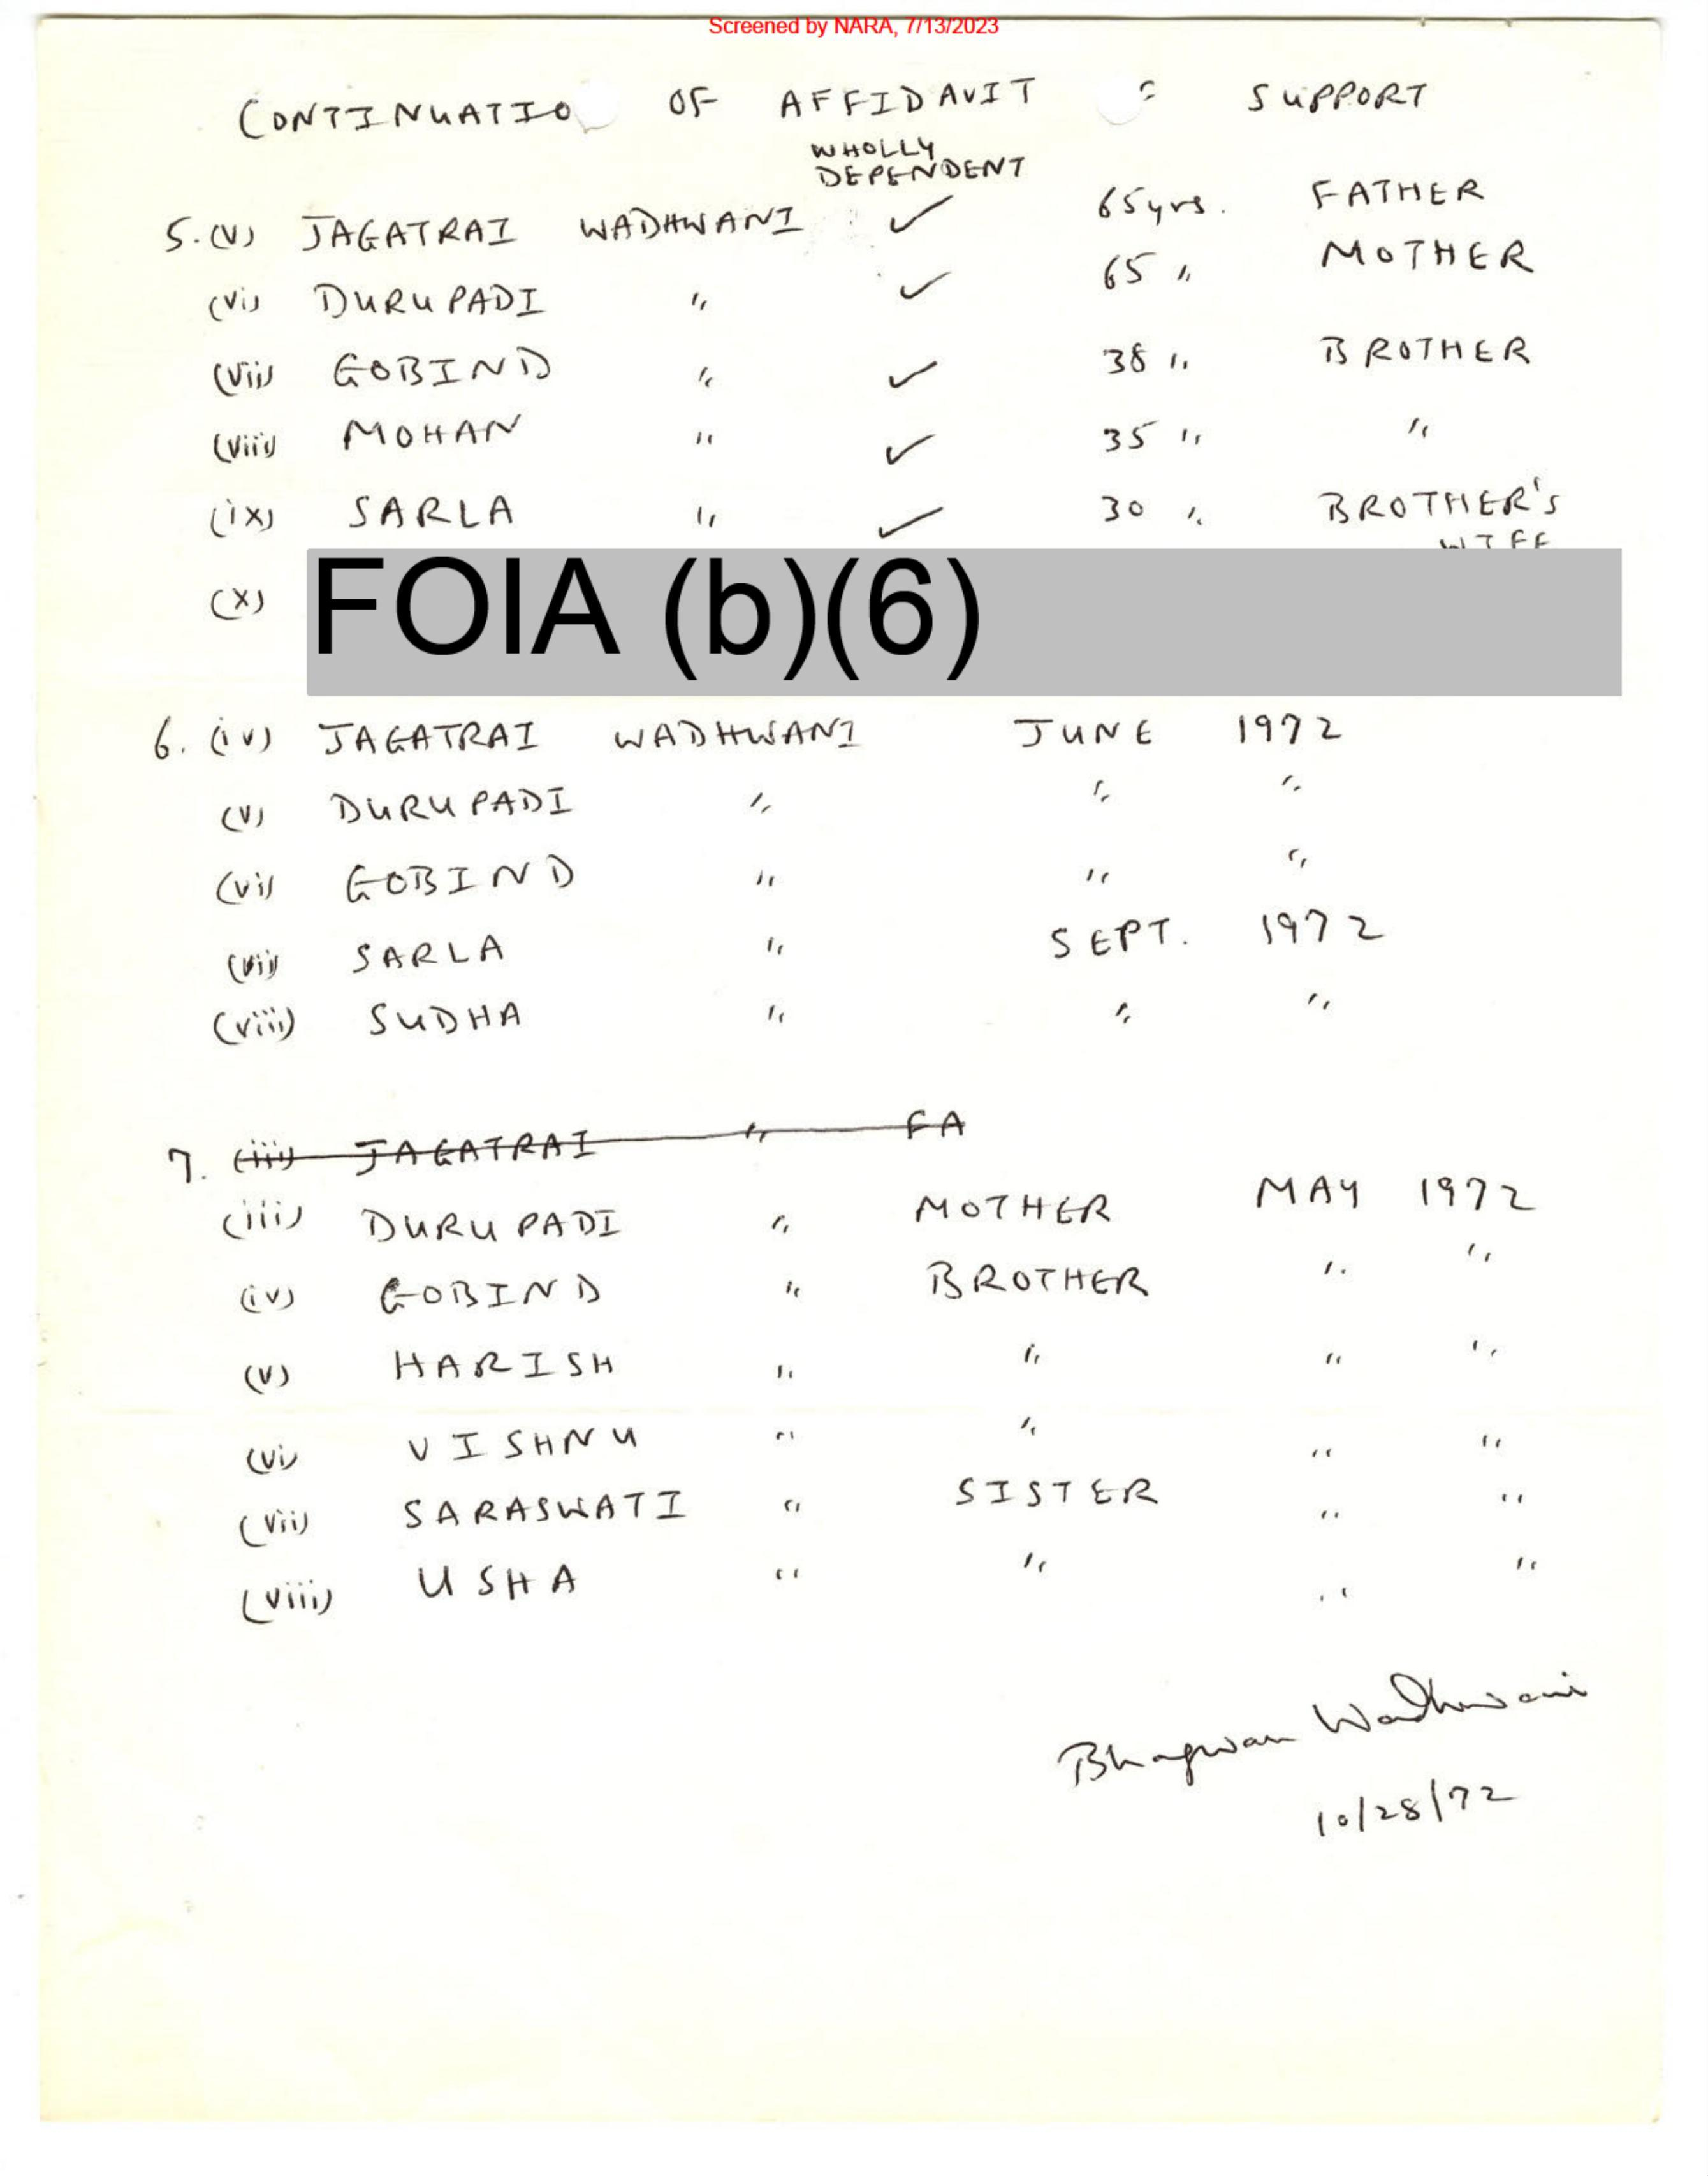 Screened by NARA, 7/13/2023
CONTINUATIO OF AFFIDAVIT SUPPORT
WHOLLY
DEPENDENT
5. (v) JAGATRAI WADHWANI ✓ 65 yrs. FATHER
(vi) DURUPADI " ✓ 65 " MOTHER
(vii) GOBIND " ✓ 38 " BROTHER
(viii) MOHAN " ✓ 35 " "
(ix) SARLA " ✓ 30 " BROTHER'S
WIFE
(x) FOIA (b)(6)
6. (iv) JAGATRAI WADHWANI JUNE 1972
(v) DURUPADI " " "
(vi) GOBIND " " "
(vii) SARLA " SEPT. 1972
(viii) SUDHA " " "
7. (iii) JAGATRAI " FA
(iii) DURUPADI " MOTHER MAY 1972
(iv) GOBIND " BROTHER " "
(v) HARISH " " " "
(vi) VISHNU " " " "
(vii) SARASWATI " SISTER " "
(viii) USHA " " " "
Bhagwan Wadhwani
10/28/72